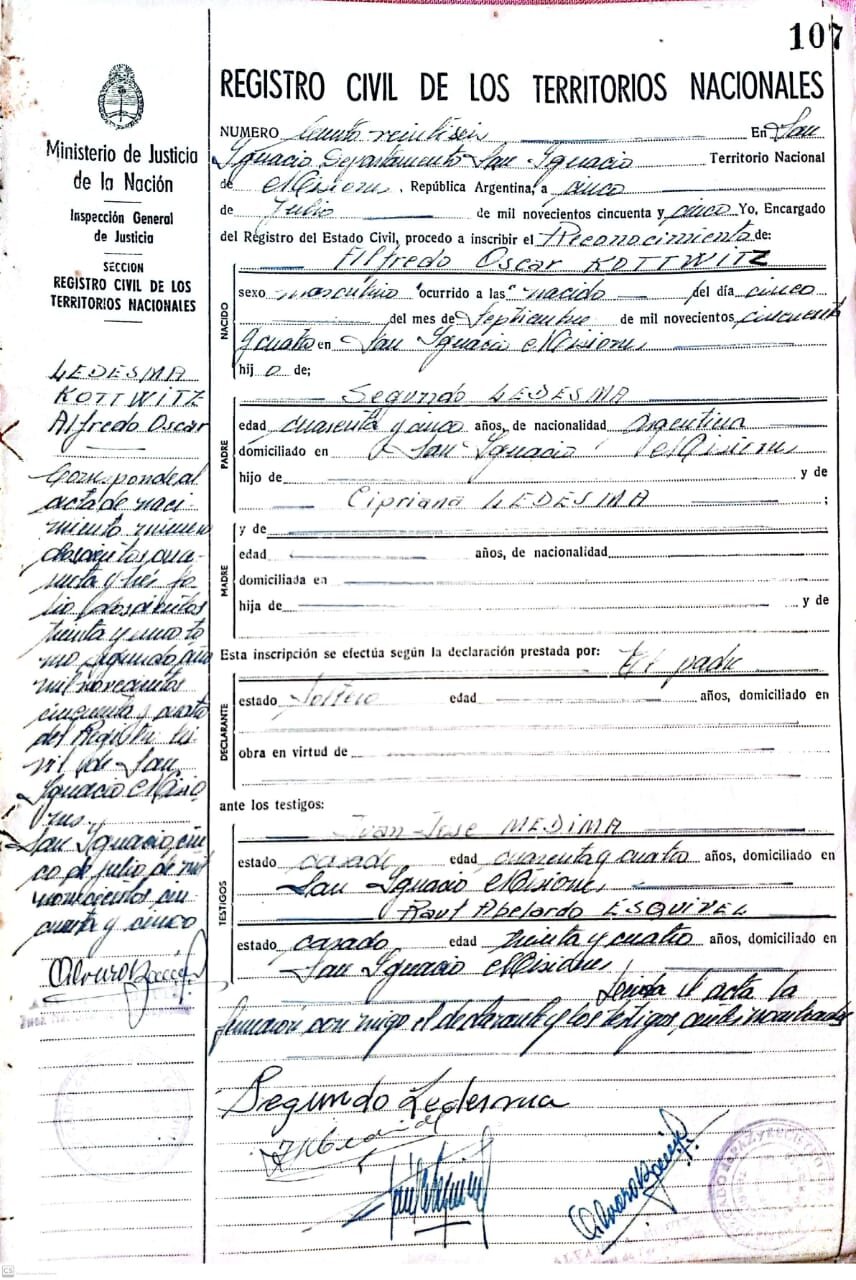 107
REGISTRO CIVIL DE LOS TERRITORIOS NACIONALES
Ministerio de Justicia
de la Nación
Inspección General
de Justicia
SECCION
REGISTRO CIVIL DE LOS
TERRITORIOS NACIONALES
LEDESMA
KOTTWITZ
Alfredo Oscar
Corresponde al
acta de naci-
miento número
doscientos cua-
renta y tres fo-
lio doscientos
treinta y uno to
mo segundo año
mil novecientos
cincuenta y cuatro
del Registro Ci-
vil de San
Ignacio Misio
nes.
San Ignacio, cin
co de julio de mil
novecientos cin
cuenta y cinco
NUMERO ciento veintiseis En San
Ignacio Departamento San Ignacio Territorio Nacional
de Misiones, República Argentina, a cinco
de Julio de mil novecientos cincuenta y cinco Yo, Encargado
del Registro del Estado Civil, procedo a inscribir el Reconocimiento de:
Alfredo Oscar KOTTWITZ
NACIDO
sexo masculino "ocurrido a las" nacido del día cinco
del mes de Septiembre de mil novecientos cincuenta
y cuatro en San Ignacio Misiones
hij o de;
PADRE
Segundo LEDESMA
edad cuarenta y cinco años, de nacionalidad argentina
domiciliado en San Ignacio Misiones
hijo de y de
Cipriana LEDESMA ;
MADRE
y de
edad años, de nacionalidad
domiciliada en
hija de y de
Esta inscripción se efectúa según la declaración prestada por: El padre
DECLARANTE
estado soltero edad años, domiciliado en
obra en virtud de
ante los testigos:
TESTIGOS
Juan José MEDINA
estado casado edad cuarenta y cuatro años, domiciliado en
San Ignacio Misiones
Raul Abelardo ESQUIVEL
estado casado edad treinta y cuatro años, domiciliado en
San Ignacio Misiones, Leida el acta la
firmaron con migo el declarante y los testigos, antes nombrados
Segundo Ledesma
CS